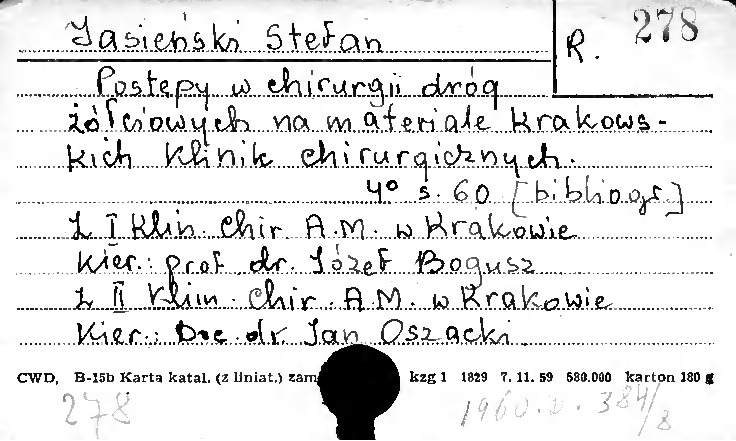 Jasieński Stefan
R. 278
Postępy w chirurgii dróg
żółciowych na materiale krakows-
kich klinik chirurgicznych.
4° s. 60 [bibliogr.]
Z I Klin. Chir. A.M. w Krakowie
Kier.: prof. dr. Józef Bogusz
Z II Klin. Chir. A.M. w Krakowie
Kier.: Doc. dr. Jan Oszacki.
CWD, B-15b Karta katal. (z liniat.) zam kzg 1 1829 7. 11. 59 580.000 karton 180 g
278
1960. D. 384/8